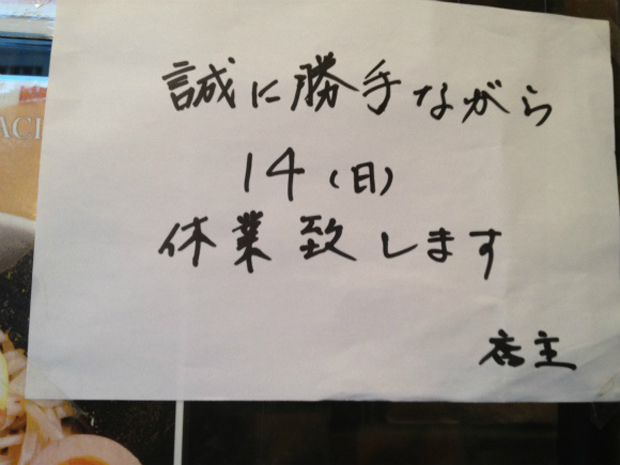 誠に勝手ながら
14(日)
休業致します
店主
ACH